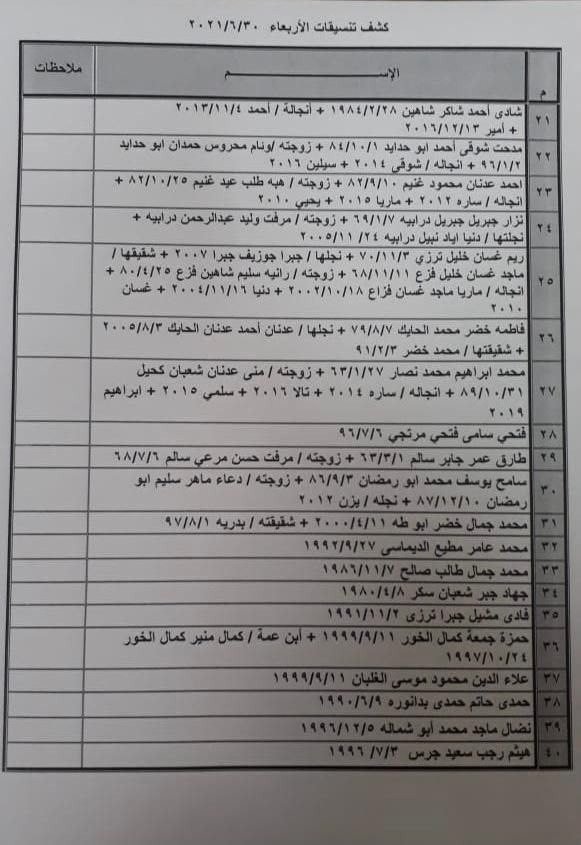 كشف تنسيقات الأربعاء ٢٠٢١/٦/٣٠
م الإســـــــــم ملاحظات
٢١ شادى أحمد شاكر شاهين ١٩٨٤/٢/٢٨ + أنجالة / أحمد ٢٠١٣/١١/٤
+ أمير ٢٠١٦/١٢/١٣
٢٢ مدحت شوقي أحمد ابو حدايد ٨٤/١٠/١ + زوجته /وئام محروس حمدان ابو حدايد
٩٦/١/٢ + انجاله / شوقي ٢٠١٤ + سيلين ٢٠١٦
٢٣ احمد عدنان محمود غنيم ٨٢/٩/١٠ + زوجته / هبه طلب عيد غنيم ٨٢/١٠/٢٥ +
انجاله / ساره ٢٠١٢ + ماريا ٢٠١٥ + يحيي ٢٠١٠
٢٤ نزار جبريل جبريل درابيه ٦٩/١/٧ + زوجته / مرفت وليد عبدالرحمن درابيه +
نجلتها / دنيا اياد نبيل درابيه ٢٤/ ٢٠٠٥/١١
٢٥ ريم غسان خليل ترزي ٧٠/١١/٣ + نجلها / جبرا جوزيف جبرا ٢٠٠٧ + شقيقها /
ماجد غسان خليل فزع ٦٨/١١/١١ + زوجته / رانيه سليم شاهين فزع ٨٠/٤/٢٥ +
انجاله / ماريا ماجد غسان فزاع ٢٠٠٢/١٠/١٨ + دنيا ٢٠٠٤/١١/١٦ + غسان
٢٠١٠
٢٦ فاطمه خضر محمد الحايك ٧٩/٨/٧ + نجلها / عدنان أحمد عدنان الحايك ٢٠٠٥/٨/٣
+ شقيقتها / محمد خضر ٩١/٢/٣
٢٧ محمد ابراهيم محمد نصار ٦٣/١/٢٧ + زوجته / منى عدنان شعبان كحيل
٨٩/١٠/٣١ + انجاله / ساره ٢٠١٤ + تالا ٢٠١٦ + سلمي ٢٠١٥ + ابراهيم
٢٠١٩
٢٨ فتحي سامى فتحي مرتجي ٩٦/٧/٦
٢٩ طارق عمر جابر سالم ٦٣/٣/١ + زوجته / مرفت حسن مرعي سالم ٦٨/٧/٦
٣٠ سامح يوسف محمد ابو رمضان ٨٦/٩/٣ + زوجته / دعاء ماهر سليم ابو
رمضان ٨٧/١٢/١٠ + نجله / يزن ٢٠١٢
٣١ محمد جمال خضر ابو طه ٢٠٠٠/٤/١١ + شقيقته / بدريه ٩٧/٨/١
٣٢ محمد عامر مطيع الديماسى ١٩٩٢/٩/٢٧
٣٣ محمد جمال طالب صالح ١٩٨٦/١١/٧
٣٤ جهاد جبر شعبان سكر ١٩٨٠/٤/٨
٣٥ فادى مشيل جبرا ترزى ١٩٩١/١١/٢
٣٦ حمزة جمعة كمال الخور ١٩٩٩/٩/١١ + أبن عمة / كمال منير كمال الخور
١٩٩٧/١٠/٢٤
٣٧ علاء الدين محمود موسى الغلبان ١٩٩٩/٩/١١
٣٨ حمدى حاتم حمدى بدانوره ١٩٩٠/٦/٩
٣٩ نضال ماجد محمد أبو شماله ١٩٩٦/١٢/٥
٤٠ هيثم رجب سعيد جرس ١٩٩٦/٧/٣